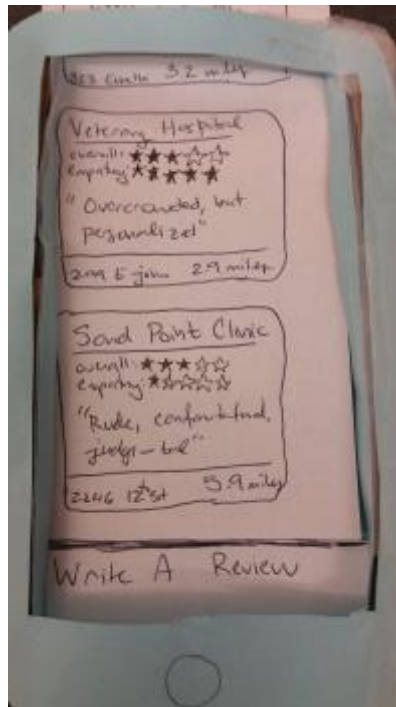 3.2 miles
Veterany Hospital
overall: ★★★☆☆
empathy: ★★★★★
"Overcrowded, but
personalized"
E john 2.9 miles
Sand Point Clinic
overall: ★★★☆☆
empathy: ★☆☆☆☆
"Rude,
judge-tal"
12th St 5.9 miles
Write A Review